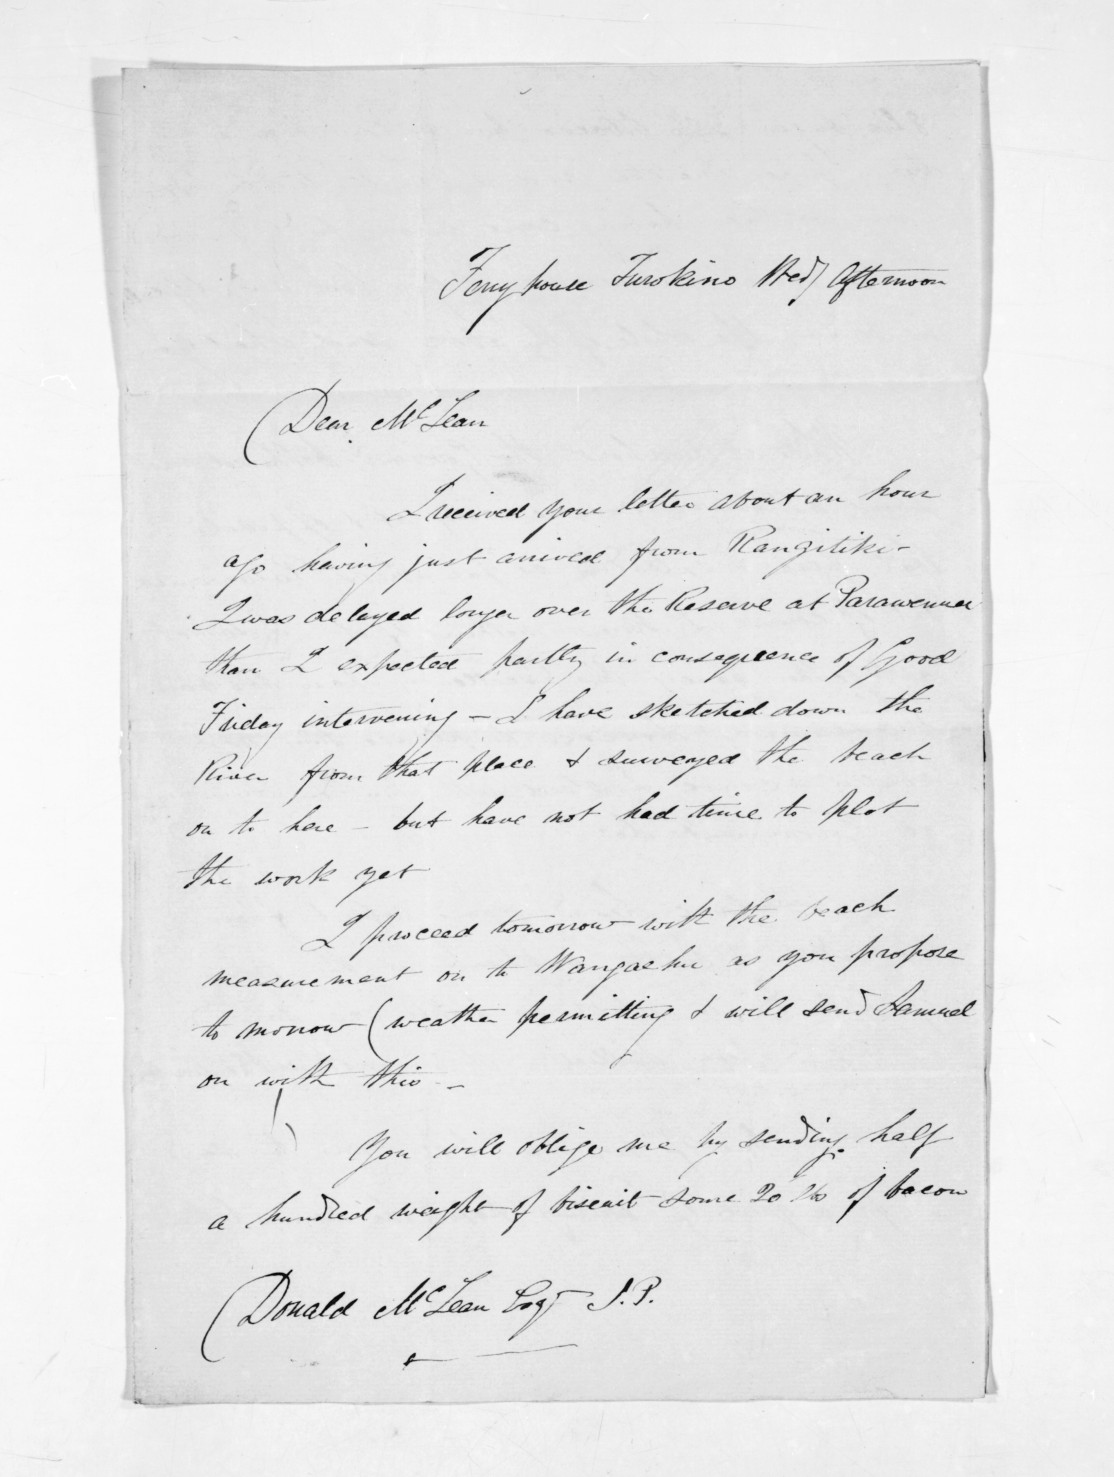 Ferry house Turokino Wedy Afternoon
Dear McLean
I received your letter about an hour
ago having just arrived from Rangitiki -
I was delayed longer over the Reserve at Parawenua
than I expected partly in consequence of Good
Friday intervening - I have sketched down the
River from that place & surveyed the beach
on to here - but have not had time to plot
the work yet
I proceed tomorrow with the beach
measurement on to Wangaehu as you propose
to morrow (weather permitting & will send Samuel
on with this -
You will oblige me by sending half
a hundred weight of biscuit some 20 lb of bacon
Donald McLean Esqr J.P.